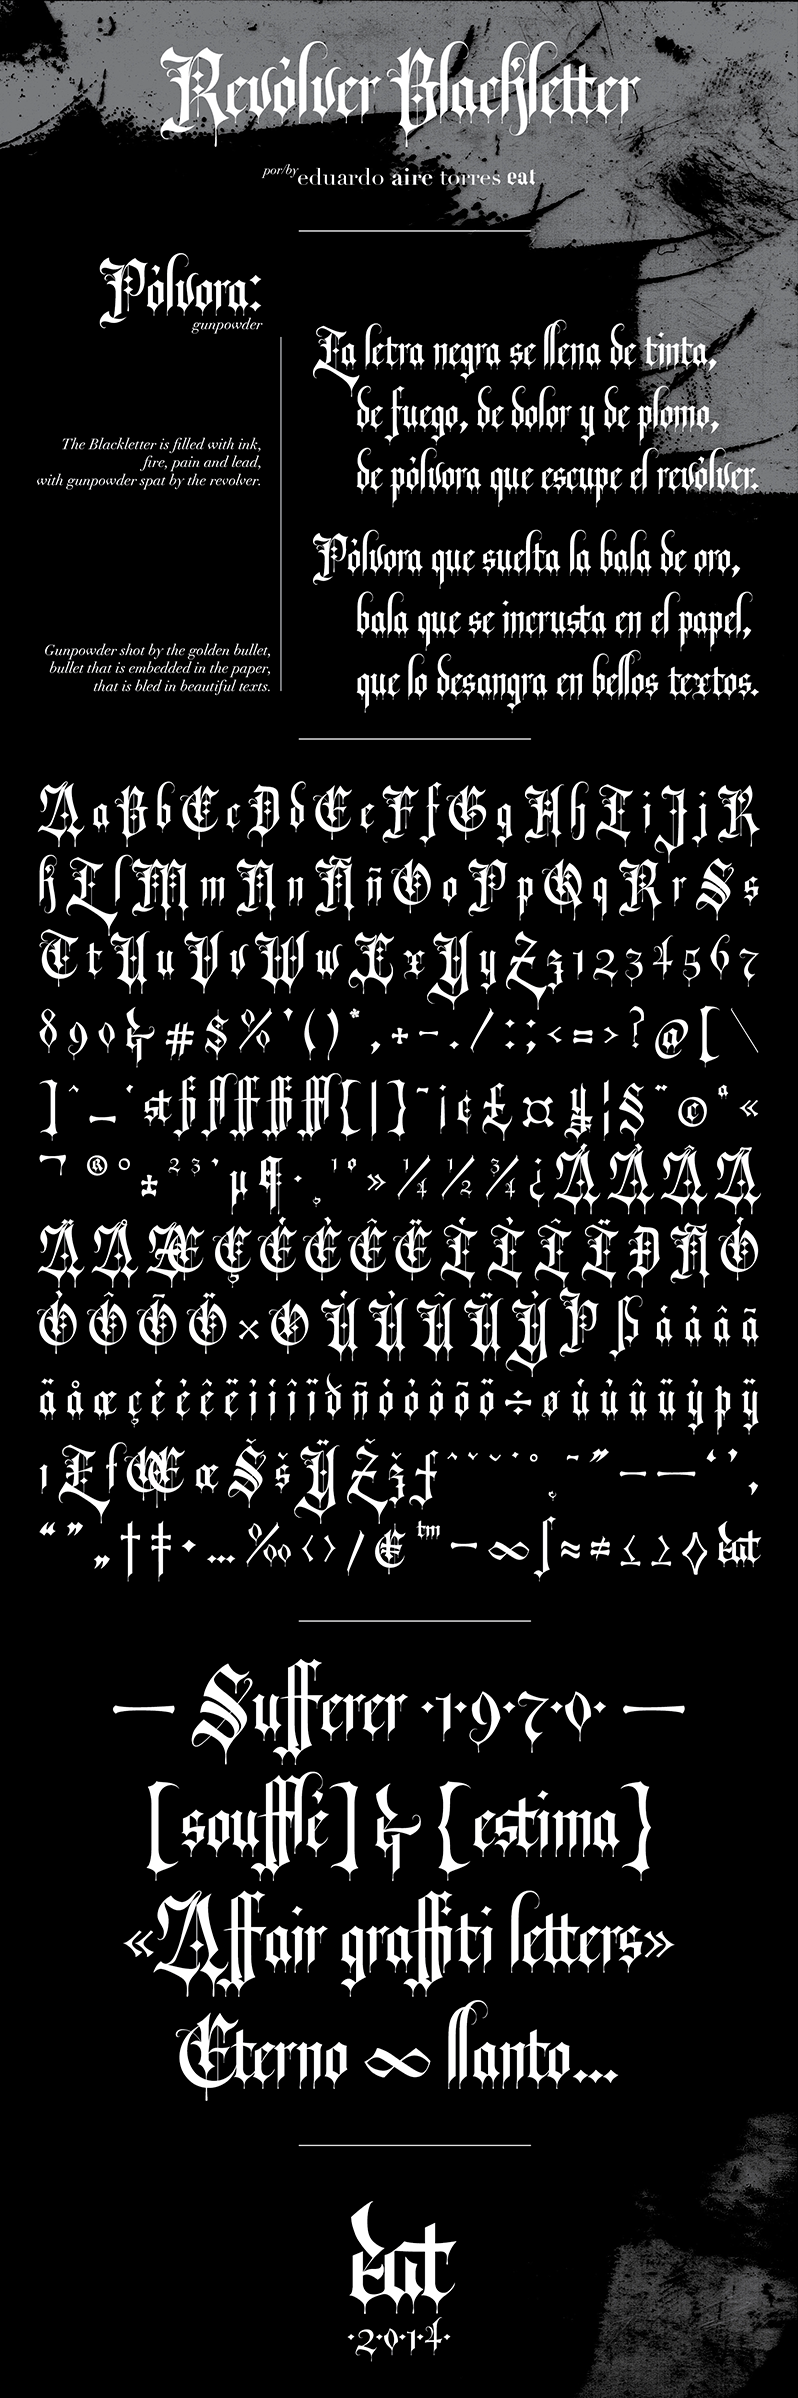 Revólver Blackletter
por/by eduardo aire torres eat
Pólvora:
gunpowder
La letra negra se llena de tinta,
de fuego, de dolor y de plomo,
de pólvora que escupe el revólver.
The Blackletter is filled with ink,
fire, pain and lead,
with gunpowder spat by the revolver.
Pólvora que suelta la bala de oro,
bala que se incrusta en el papel,
que lo desangra en bellos textos.
Gunpowder shot by the golden bullet,
bullet that is embedded in the paper,
that is bled in beautiful texts.
A a B b C c D d E e F f G g H h I i J j K
k L l M m N n Ñ ñ O o P p Q q R r S s
T t U u V v W w X x Y y Z z 1 2 3 4 5 6 7
8 9 0 & # $ % ' ( ) * , + - . / : ; < = > ? @ [ \
] ^ _ ` st fi fl ff ffi ffl { | } ~ ¡ ¢ £ ¤ ¥ ¦ § ¨ © ª «
¬ ® ° ± ² ³ ´ µ ¶ · ¸ ¹ º » ¼ ½ ¾ ¿ À Á Â Ã
Ä Å Æ Ç È É Ê Ë Ì Í Î Ï Ð Ñ Ò
Ó Ô Õ Ö × Ø Ù Ú Û Ü Ý Þ ß à á â ã
ä å æ ç è é ê ë ì í î ï ð ñ ò ó ô õ ö ÷ ø ù ú û ü ý þ ÿ
ı Ł ł Œ œ Š š Ÿ Ž ž ƒ ˆ ˇ ˘ ˙ ˚ ˛ ˜ ˝ – — ‘ ’ ‚
“ ” „ † ‡ • … ‰ ‹ › ⁄ € ™ − ∞ ∫ ≈ ≠ ≤ ≥ ◊ eat
— Sufferer ·1·9·7·0· —
[soufflé] & {estima}
«Affair graffiti letters»
Eterno ∞ llanto...
eat
·2·0·1·4·